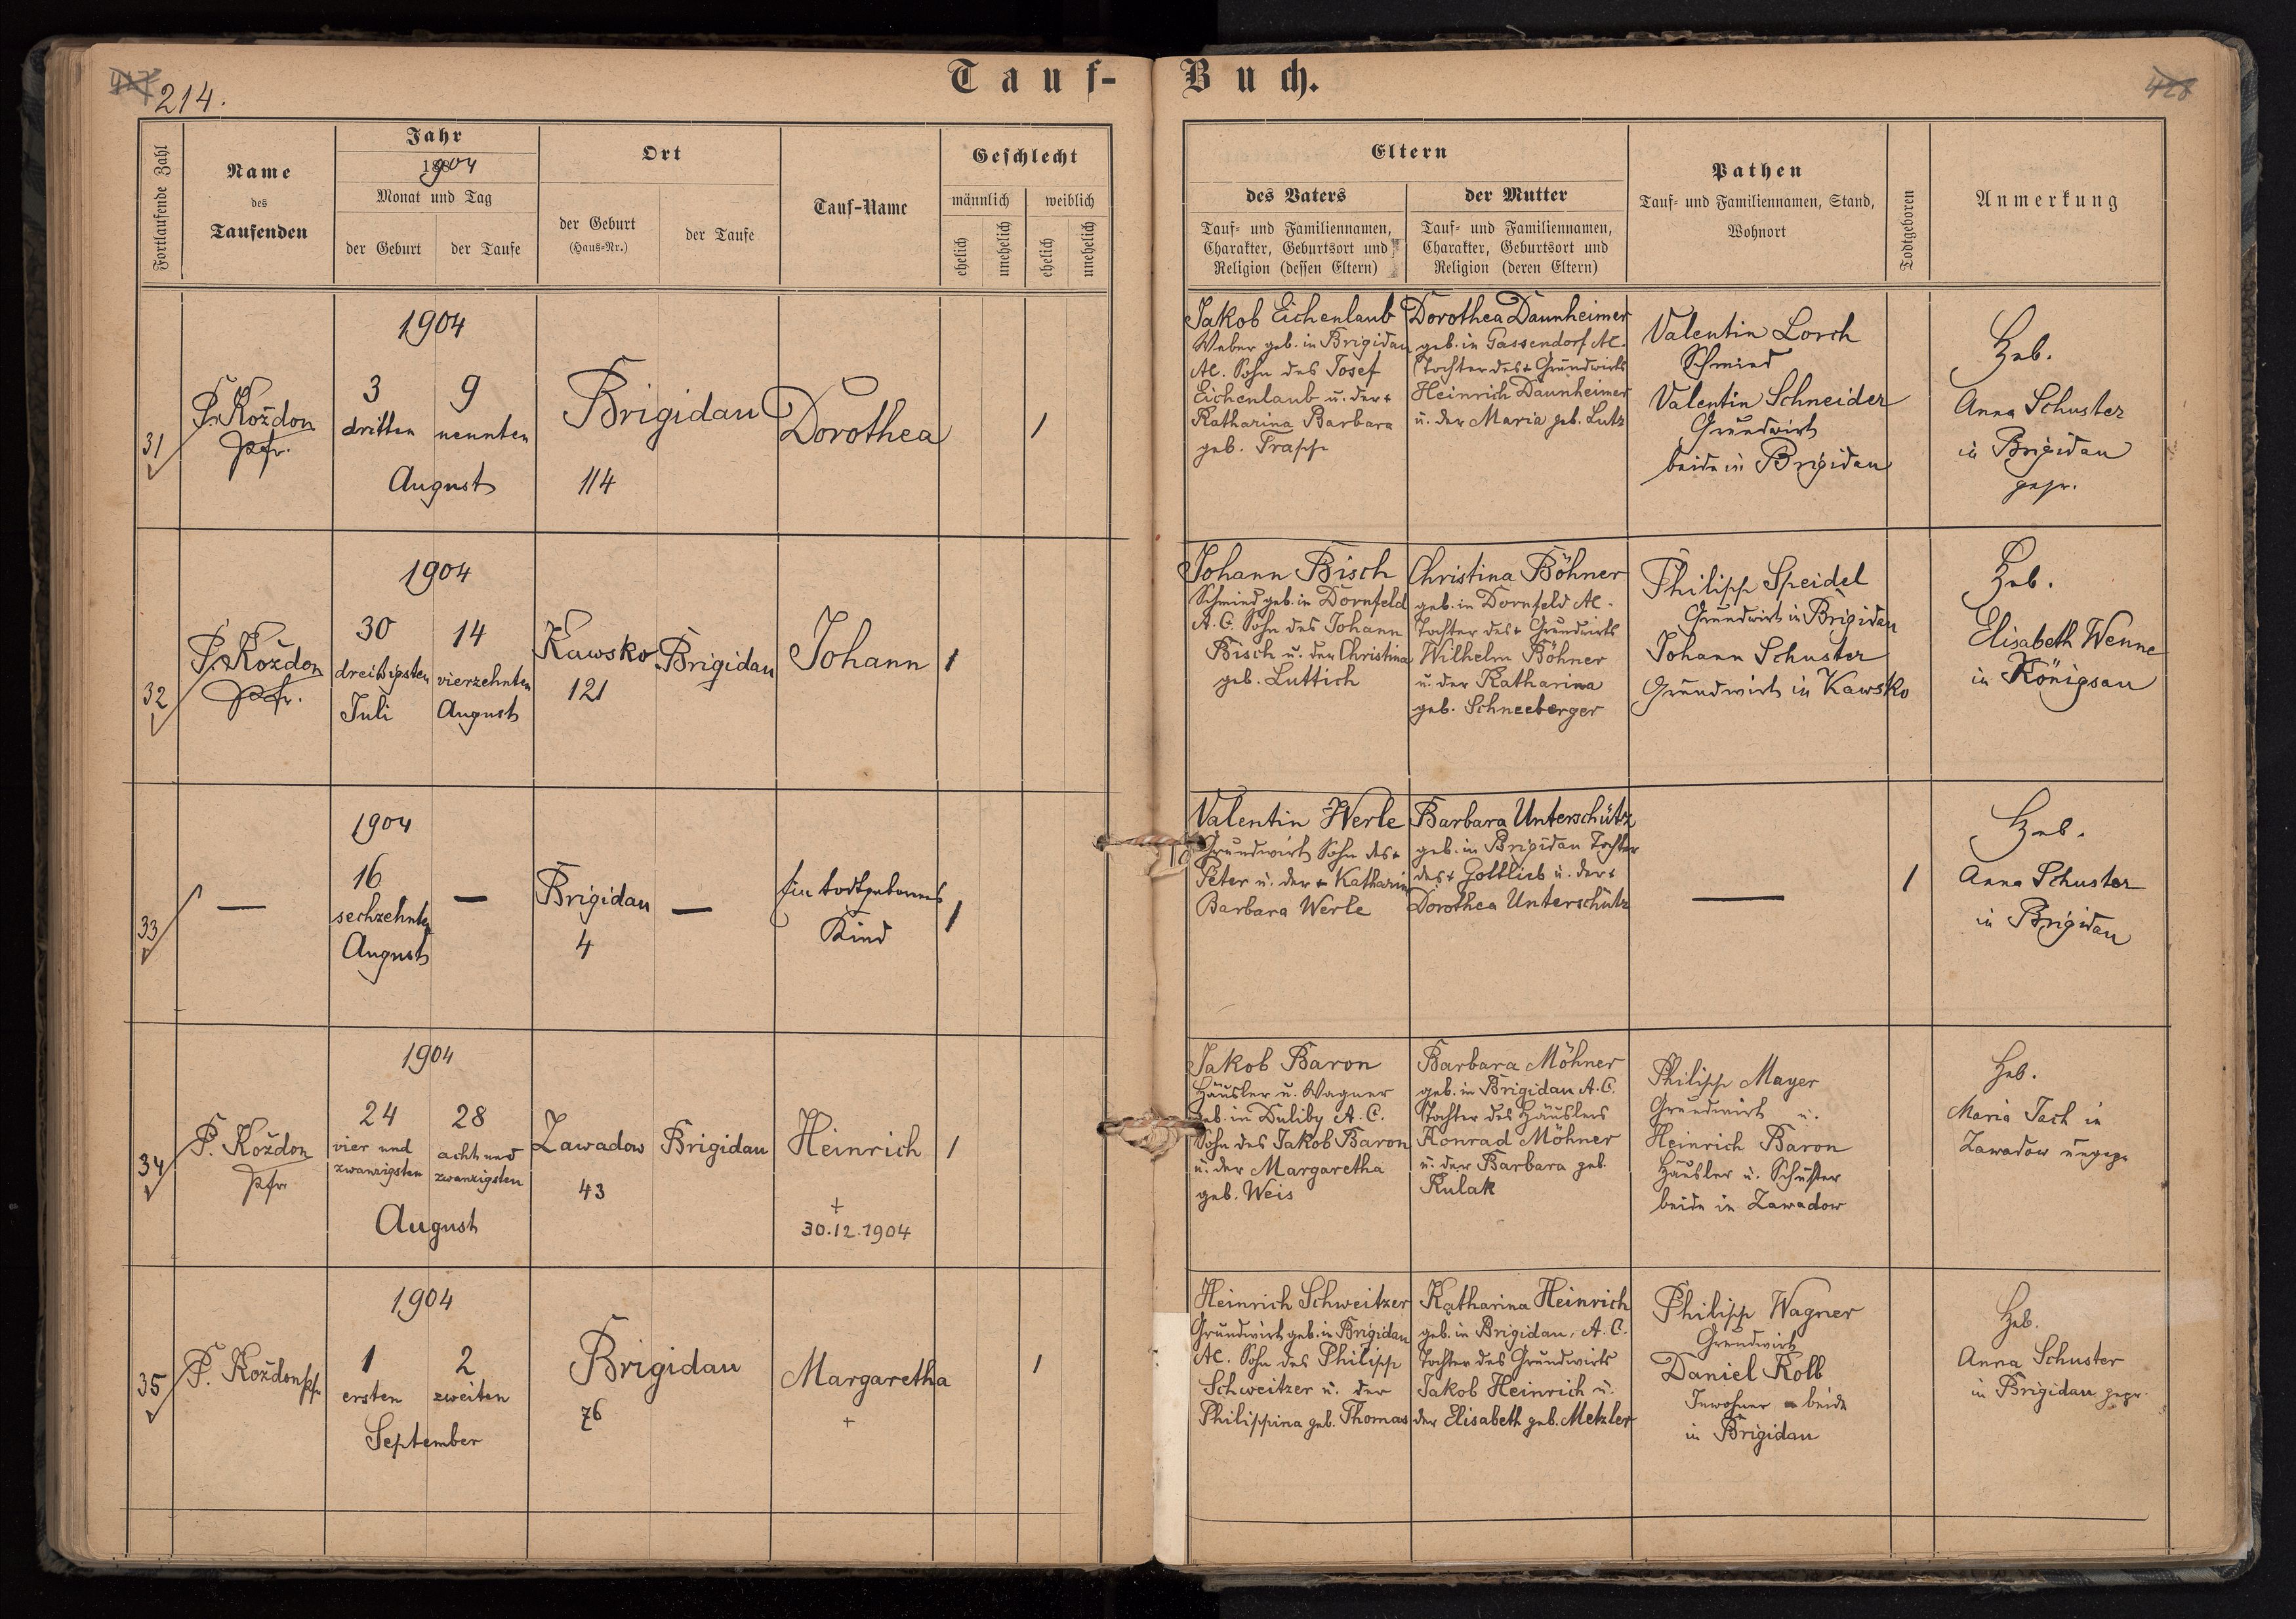 214.
Tauf-Buch.
428
Fortlaufende Zahl
Name
des
Taufenden
Jahr
1904
Monat und Tag
der Geburt
der Taufe
Ort
der Geburt
(Haus-Nr.)
der Taufe
Tauf-Name
Geschlecht
männlich
weiblich
ehelich
unehelich
ehelich
unehelich
Eltern
des Vaters
Tauf- und Familiennamen,
Charakter, Geburtsort und
Religion (dessen Eltern)
der Mutter
Tauf- und Familiennamen,
Charakter, Geburtsort und
Religion (deren Eltern)
Pathen
Tauf- und Familiennamen, Stand,
Wohnort
Todtgeboren
Anmerkung
31
P. Koždon
Pfr.
1904
3
dritten
9
neunten
August
Brigidau
114
Dorothea
1
Jakob Eichenlaub
Weber geb. in Brigidau
AC. Sohn des Josef
Eichenlaub u. der +
Katharina Barbara
geb. Trapp
Dorothea Daunheimer
geb. in Gassendorf AC.
Tochter des + Grundwirts
Heinrich Daunheimer
u. der Maria geb. Lutz
Valentin Lorch
Schmied
Valentin Schneider
Grundwirt
beide in Brigidau
Heb.
Anna Schuster
in Brigidau
gepr.
32
P. Koždon
Pfr.
1904
30
dreißigsten
Juli
14
vierzehnten
August
Kawsko
121
Brigidau
Johann
1
Johann Bisch
Schmied geb. in Dornfeld
A. C. Sohn des Johann
Bisch u. der Christina
geb. Luttich
Christina Böhner
geb. in Dornfeld AC.
Tochter des + Grundwirts
Wilhelm Böhner
u. der Katharina
geb. Schneeberger
Philipp Speidel
Grundwirt in Brigidau
Johann Schuster
Grundwirt in Kawsko
Heb.
Elisabeth Wenne
in Königsau
33
—
1904
16
sechzehnten
August
—
Brigidau
4
—
Ein todtgeborenes
Kind
1
Valentin Werle
Grundwirt Sohn des +
Peter u. der + Katharina
Barbara Werle
Barbara Unterschütz
geb. in Brigidau Tochter
des + Gottlieb u. der +
Dorothea Unterschütz
—
1
Heb.
Anna Schuster
in Brigidau
34
P. Koždon
Pfr.
1904
24
vier und
zwanzigsten
28
acht und
zwanzigsten
August
Zawadow
43
Brigidau
Heinrich
+
30.12.1904
1
Jakob Baron
Häusler u. Wagner
geb. in Duliby A. C.
Sohn des Jakob Baron
u. der Margaretha
geb. Weis
Barbara Möhner
geb. in Brigidau A. C.
Tochter des Häuslers
Konrad Möhner
u. der Barbara geb.
Kulak
Philipp Mayer
Grundwirt u.
Heinrich Baron
Häusler u. Schuster
beide in Zawadow
Heb.
Maria Tach in
Zawadow ungepr.
35
P. Koždon Pfr.
1904
1
ersten
2
zweiten
September
Brigidau
76
Margaretha
+
1
Heinrich Schweitzer
Grundwirt geb. in Brigidau
AC. Sohn des Philipp
Schweitzer u. der
Philippina geb. Thomas
Katharina Heinrich
geb. in Brigidau, A. C.
Tochter des Grundwirts
Jakob Heinrich u.
der Elisabeth geb. Metzler
Philipp Wagner
Grundwirt
Daniel Kolb
Inwohner beide
in Brigidau
Heb.
Anna Schuster
in Brigidau gepr.